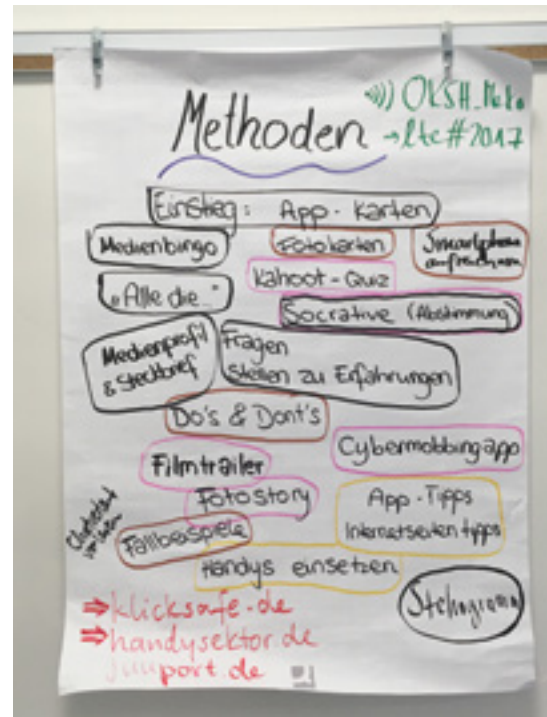 OKSH_
Methoden
→lte#2017
Einstieg: App-Karten
Medienbingo
Fotokarten
Smartphone
Kahoot-Quiz
"Alle die..."
Socrative (Abstimmung)
Medienprofil
& Steckbrief
Fragen
stellen zu Erfahrungen
Do's & Dont's
Cybermobbingapp
Filmtrailer
Fotostory
App-Tipps
Internetseitentipps
Fallbeispiele
Handys einsetzen
⇒klicksafe.de
⇒handysektor.de
port.de